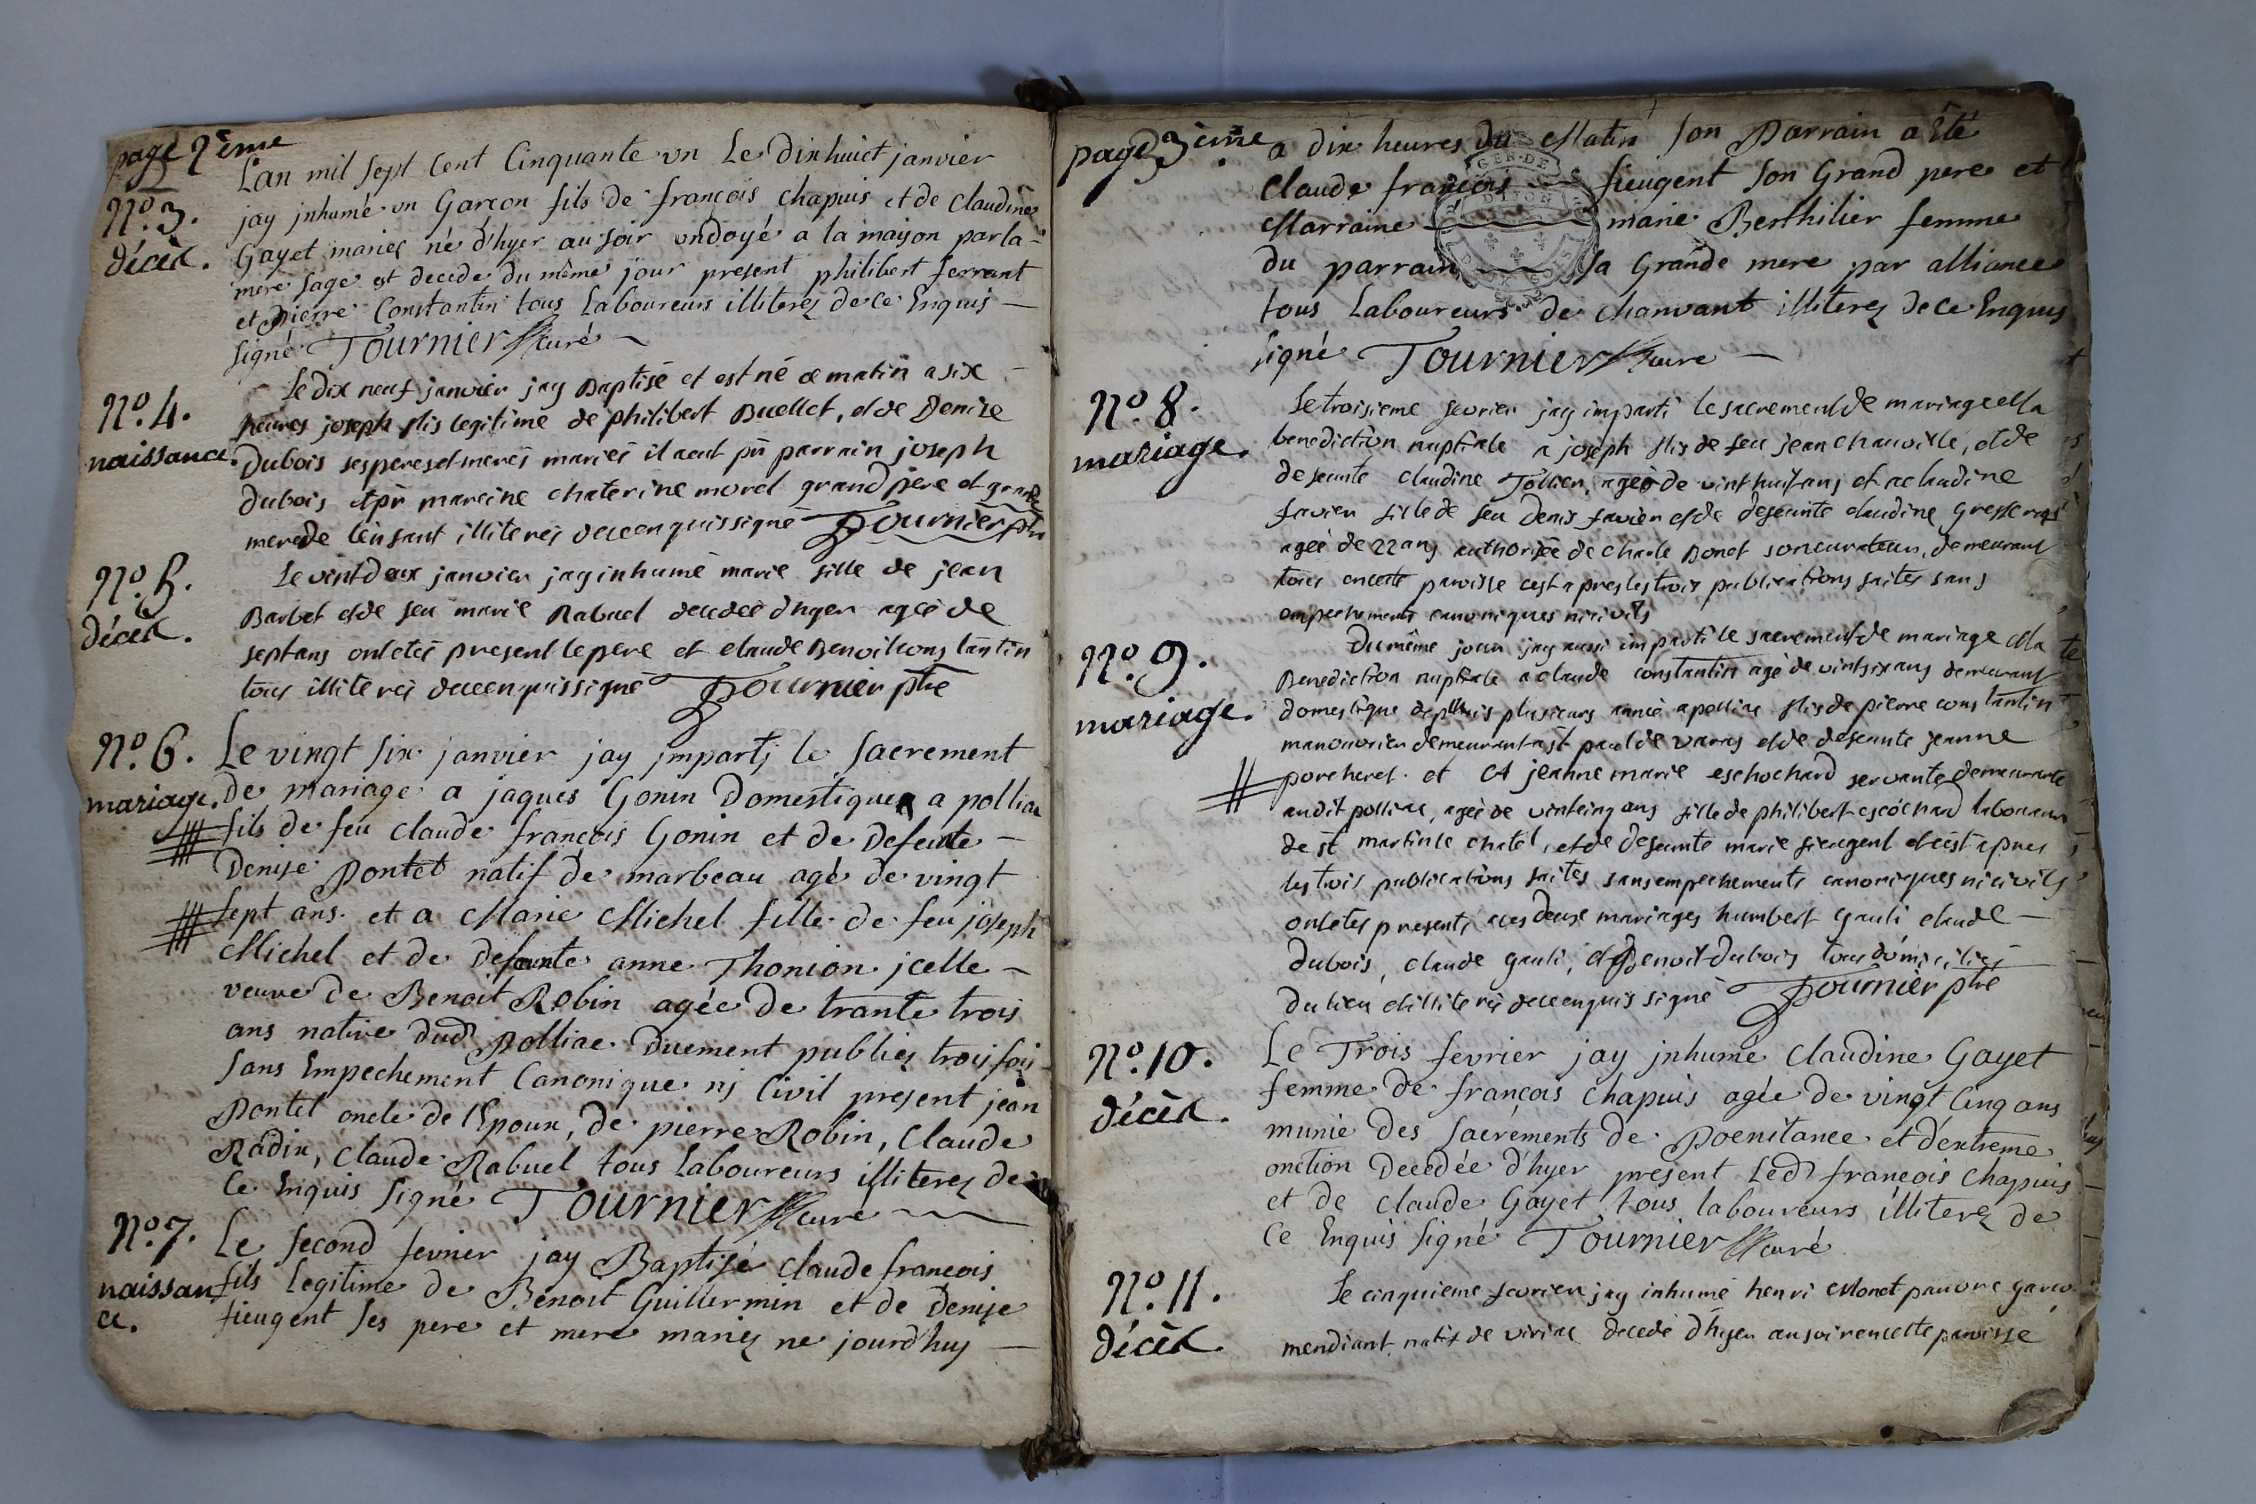 page 2ème
L'an mil sept cent Cinquante un Le dixhuict janvier
No. 3.
décès.
jay jnhumé un Garcon fils de françois chapuis et de Claudine
Gayet mariez né d'hyer au soir ondoyé a la maison par la
mere sage et decede du même jour present philibert ferrant
et pierre Constantin tous Laboureurs illiterez de ce Enquis
signé Tournier curé
No. 4.
naissance.
Le dix neuf janvier jay Baptisé et est né ce matin a six
heures joseph fils legitime de philibert Buellet, et de Denize
Dubois ses peres et meres mariés il a eut pr parrain joseph
dubois et pr mareine chaterine morel grand pere et grand
mere de l'enfant illiterés de ce enquis signé Tournier ptre
No. 5.
décès.
Le vint deux janvier jay inhumé marie fille de jean
Barbet et de feu marie Rabuel decedeé d'hyer ageé de
sept ans ont etés present le pere et claude Benoit constantin
tous illiterés de ce enquis signé Tournier ptre
No. 6.
mariage.
Le vingt six janvier jay jmparti le sacrement
de mariage a jaques Gonin Domestique a polliac
fils de feu claude françois Gonin et de defeute
Denise Pontet natif de marbeau agé de vingt
sept ans. et a Marie Michel fille de feu joseph
Michel et de defante anne Thonion jcelle
veuve de Benoit Robin agée de trante trois
ans native dud Polliac. Duement publiez trois fois
sans Empechement Canonique nj Civil present jean
Pontet oncle de l'Epoux, de pierre Robin, Claude
Radix, claude Rabuel tous Laboureurs illiterez de
Ce Enquis signé Tournier curé
No. 7.
naissan
ce.
Le second fevrier jay Baptisé claude francois
fils legitime de Benoit Guillermin et de Denise
fieugent ses pere et mere mariez ne jourd'huj
page 3ème
a dix heures du Matin son Parrain a Eté
GEN. DE
DIJON
DEUX SOLS
Claude françois fieugent son Grand pere et
Marraine marie Berthilier femme
du parrain sa Grande mere par alliance
tous Laboureurs de chanvant illiterez de ce Enquis
signé Tournier cure
No. 8.
mariage.
Le troisieme fevrier jay imparti le sacrement de mariage et la
benediction nuptiale a joseph fils de feu jean chauville, et de
defeunte claudine Tollien, ageé de vint huit ans et a claudine
favier fille de feu Denis favier et de defeunte claudine
ageé de 22 ans authorisée de charle Bonet son curateur, demeurant
tous en cette paroisse cest apres les trois publications faites sans
empechements canoniques ni civils
No. 9.
mariage.
Du même jour jay aussi imparti le sacrement de mariage et la
Benediction nuptiale a claude constantin agé de vint six ans demeurant
domestique depuis plusieurs anneé a polliac fils de pierre constantin
manouvrier demeurant a st paul de varas et de defeunte jeanne
porcheret. et A jeanne marie eschochard servante demeurante
audit polliac, ageé de vint cinq ans fille de philibert escochard laboureur
de st martin le chatel, et de defeunte marie fieugent et c'est apres
les trois publications faites sans empechements canoniques ni civils
ont etés presents a ces deux mariages humbert gauli claude
dubois, claude gauli, et Benoit dubois tous domiciliés
du lieu et illiterés de ce enquis signé Tournier ptre
No. 10.
décès.
Le Trois fevrier jay jnhumé Claudine Gayet
femme de françois chapuis agée de vingt Cinq ans
munie des sacréments de Poenitance et d'extreme
onction Decedée d'hyer present Led françois chapuis
et de Claude Gayet tous laboureurs illiterez de
Ce Enquis signé Tournier curé
No. 11.
décès
Le cinquieme fevrier jay inhumé henri Monet pauvre garco
mendiant natif de viriac decedé d'hyer au soir en cette paroisse